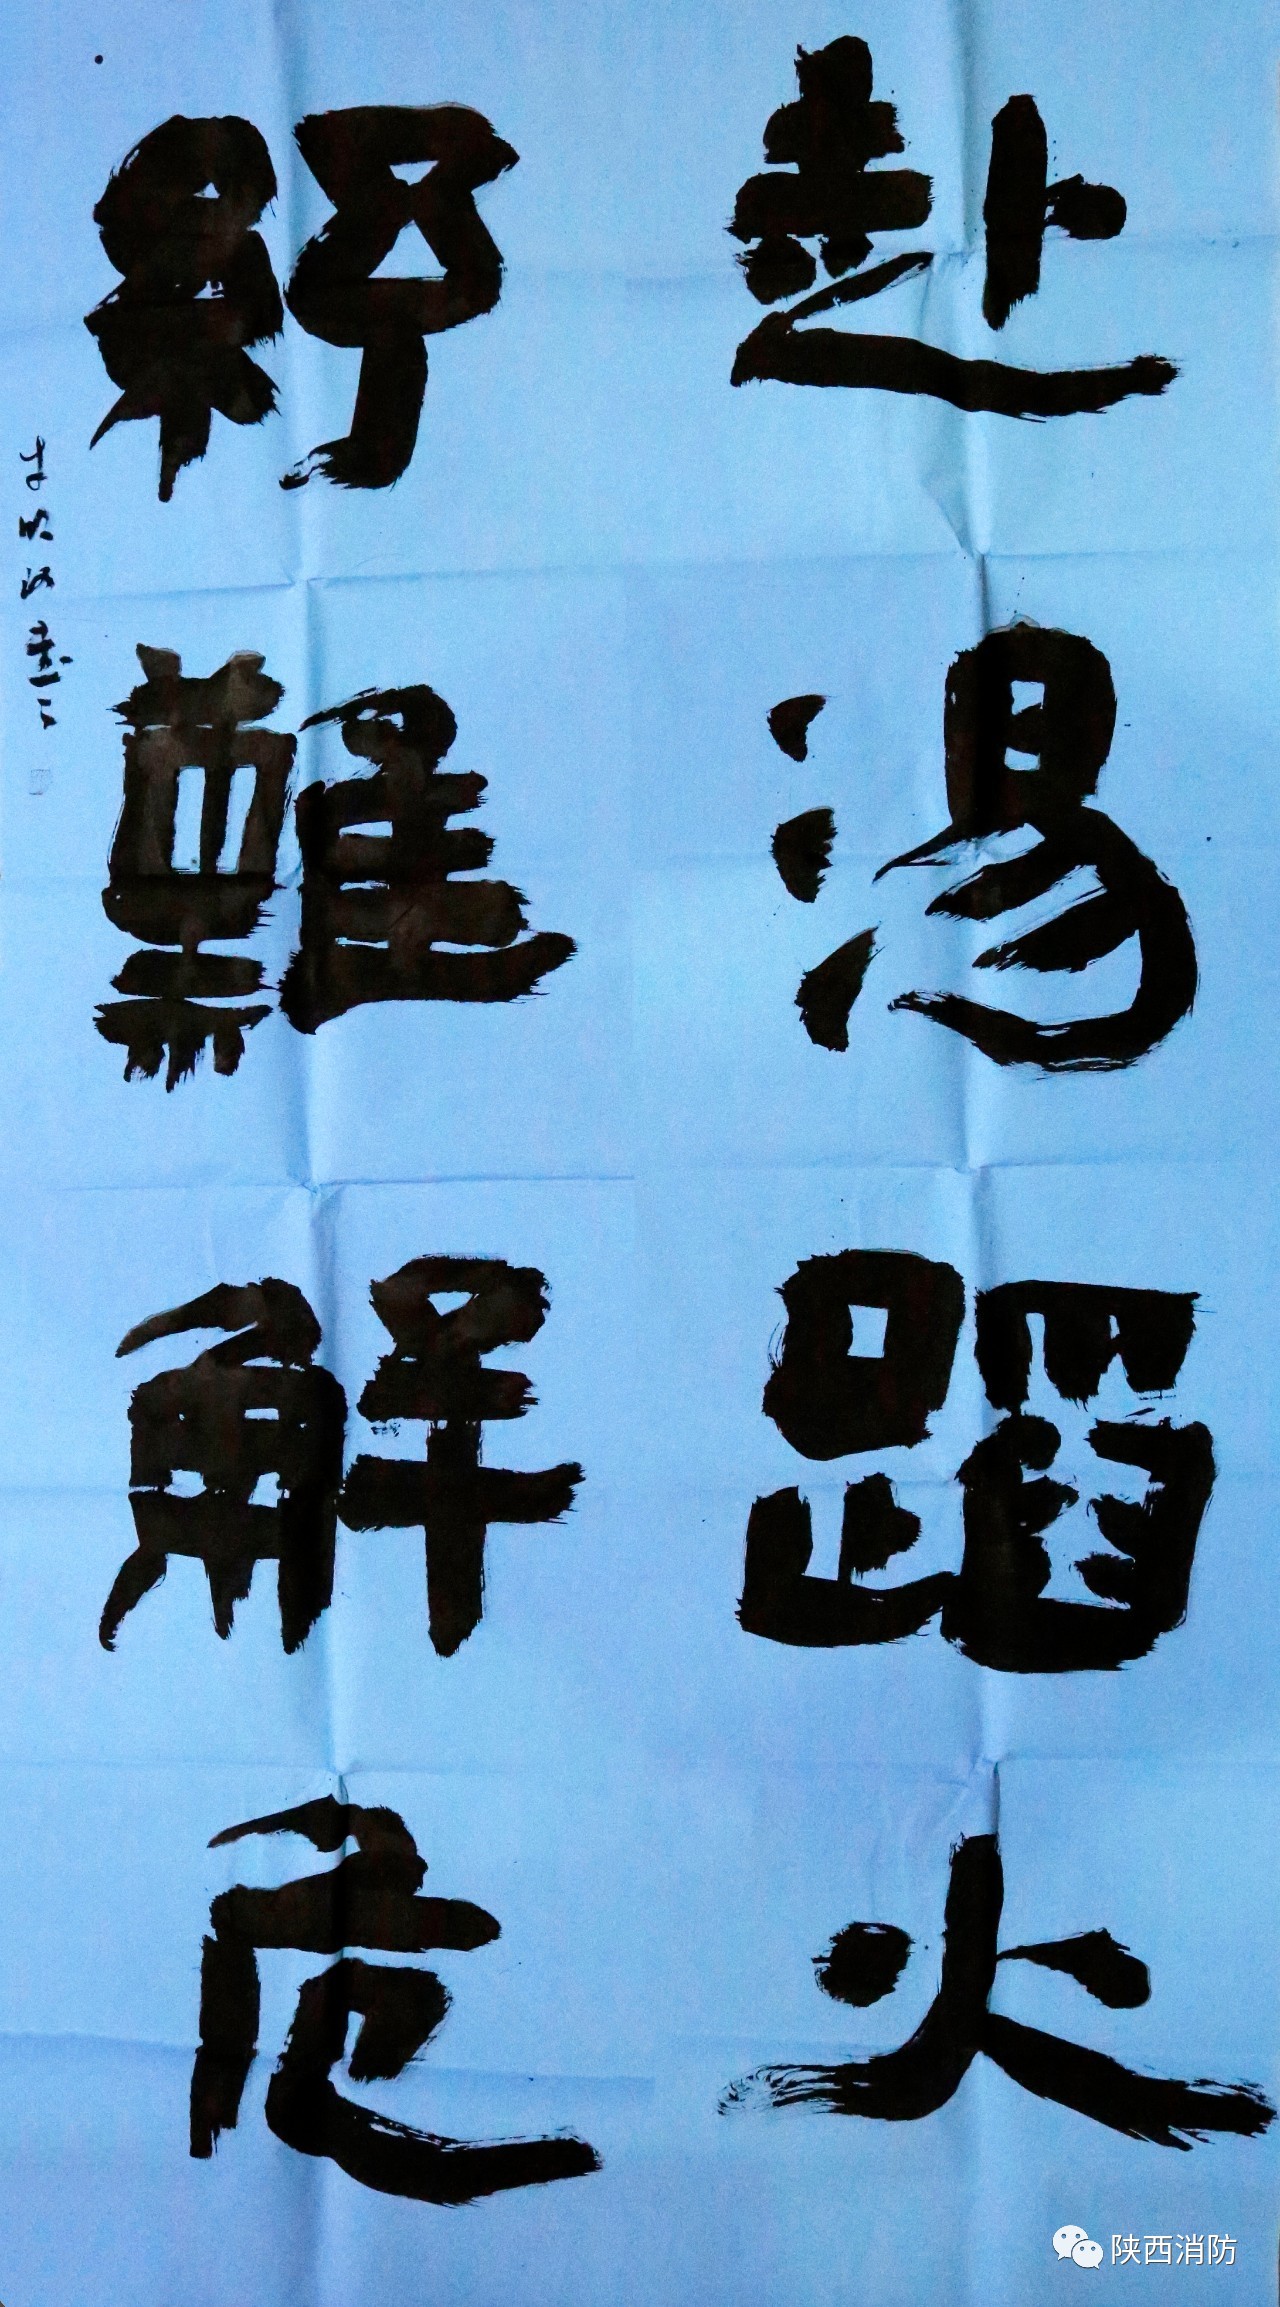 赴湯蹈火
紓難解危
陕西消防